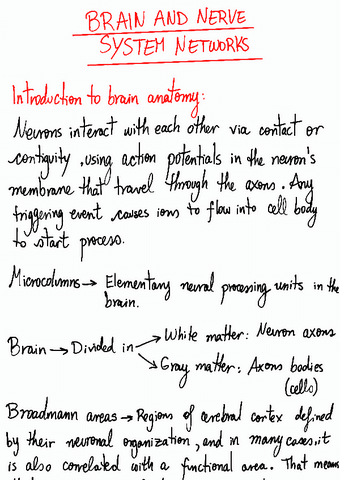 BRAIN AND NERVE
SYSTEM NETWORKS
Introduction to brain anatomy:
Neurons interact with each other via contact or
contiguity, using action potentials in the neuron's
membrane that travel through the axons. Any
triggering event causes ions to flow into cell body
to start process.
Microcolumns → Elementary neural processing units in the
brain.
Brain → Divided in → White matter: Neuron axons
→ Gray matter: Axons bodies
(cells)
Broadmann areas → Regions of cerebral cortex defined
by their neuronal organization, and in many cases, it
is also correlated with a functional area. That means